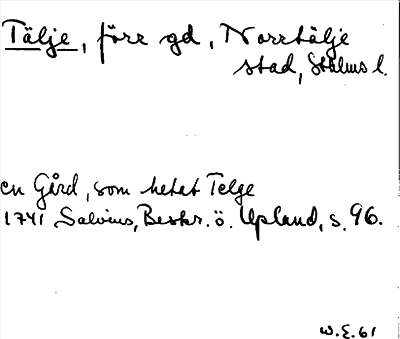 Tälje, förr gd, Norrtälje
stad, Sthlms l.
en Gård, som hetat Telge
1741 Salvius, Beskr. ö. Upland, s. 96.
W.E. 61